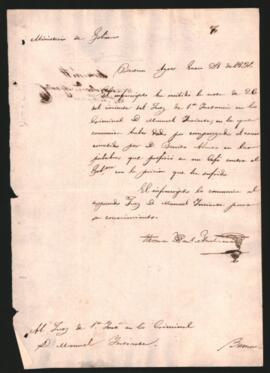 Ministerio de Gobierno
Buenos Ayres Enero 28 de
El infrascripto ha recibido la nota de 26
del corriente del Juez de 1ra Instancia en lo
Criminal D. Manuel Insiarte, en la que
comunica haber dado por compurgado el
cometido por D. Benito en las
palabras que profirió en un Café contra el
con la prision que ha sufrido.
El infrascripto lo comunica al
expresado Juez D. Manuel Insiarte para
su conocimiento.
Al Juez de 1ra Insta en lo Criminal
D. Manuel Insiarte